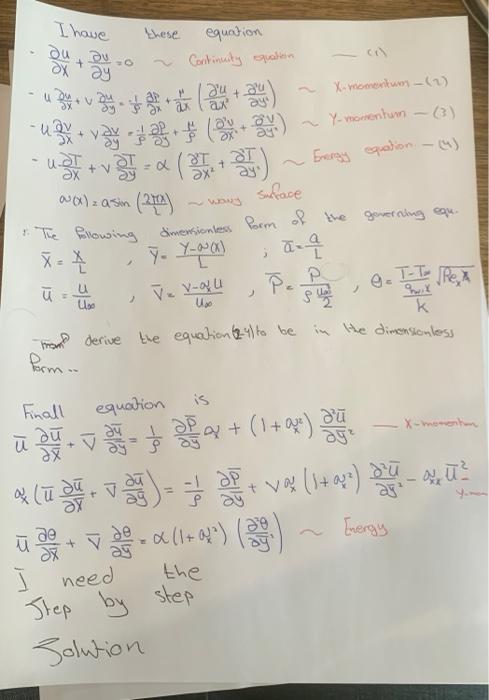 I have these equation
- ∂u/∂x + ∂v/∂y = 0 ~ Continuity equation — (1)
- u ∂u/∂x + v ∂u/∂y = -1/ρ ∂P/∂x + μ/ρx (∂²u/∂x² + ∂²u/∂y²) ~ X-momentum - (2)
- u ∂v/∂x + v ∂v/∂y = -1/ρ ∂P/∂y + μ/ρ (∂²v/∂x² + ∂²v/∂y²) ~ Y-momentum - (3)
- u ∂T/∂x + v ∂T/∂y = α (∂²T/∂x² + ∂²T/∂y²) ~ Energy equation - (4)
σ(x) = a sin (2πx/L) ~ wavy surface
The following dimensionless form of the governing equ.
x̄ = x/L , ȳ = y-σ(x)/L ; ā = a/L
ū = u/u∞ , v̄ = v-σₓu/u∞ , P̄ = P/ρ u∞²/2 , θ = T-T∞/ k √Reₓ
derive the equation (2-4) to be in the dimensionless
form..
Finall equation is
ū ∂ū/∂x̄ + v̄ ∂ū/∂ȳ = 1/ρ ∂P̄/∂ȳ σₓ + (1+σₓ²) ∂²ū/∂ȳ² — X-momentum
σₓ (ū ∂ū/∂x̄ + v̄ ∂ū/∂ȳ) = -1/ρ ∂P̄/∂ȳ + ν σₓ (1+σₓ²) ∂²ū/∂ȳ² - σₓₓ ū² -
ū ∂θ/∂x̄ + v̄ ∂θ/∂ȳ = α (1+σₓ²) (∂²θ/∂ȳ²) ~ Energy
I need the
Step by step
Solution